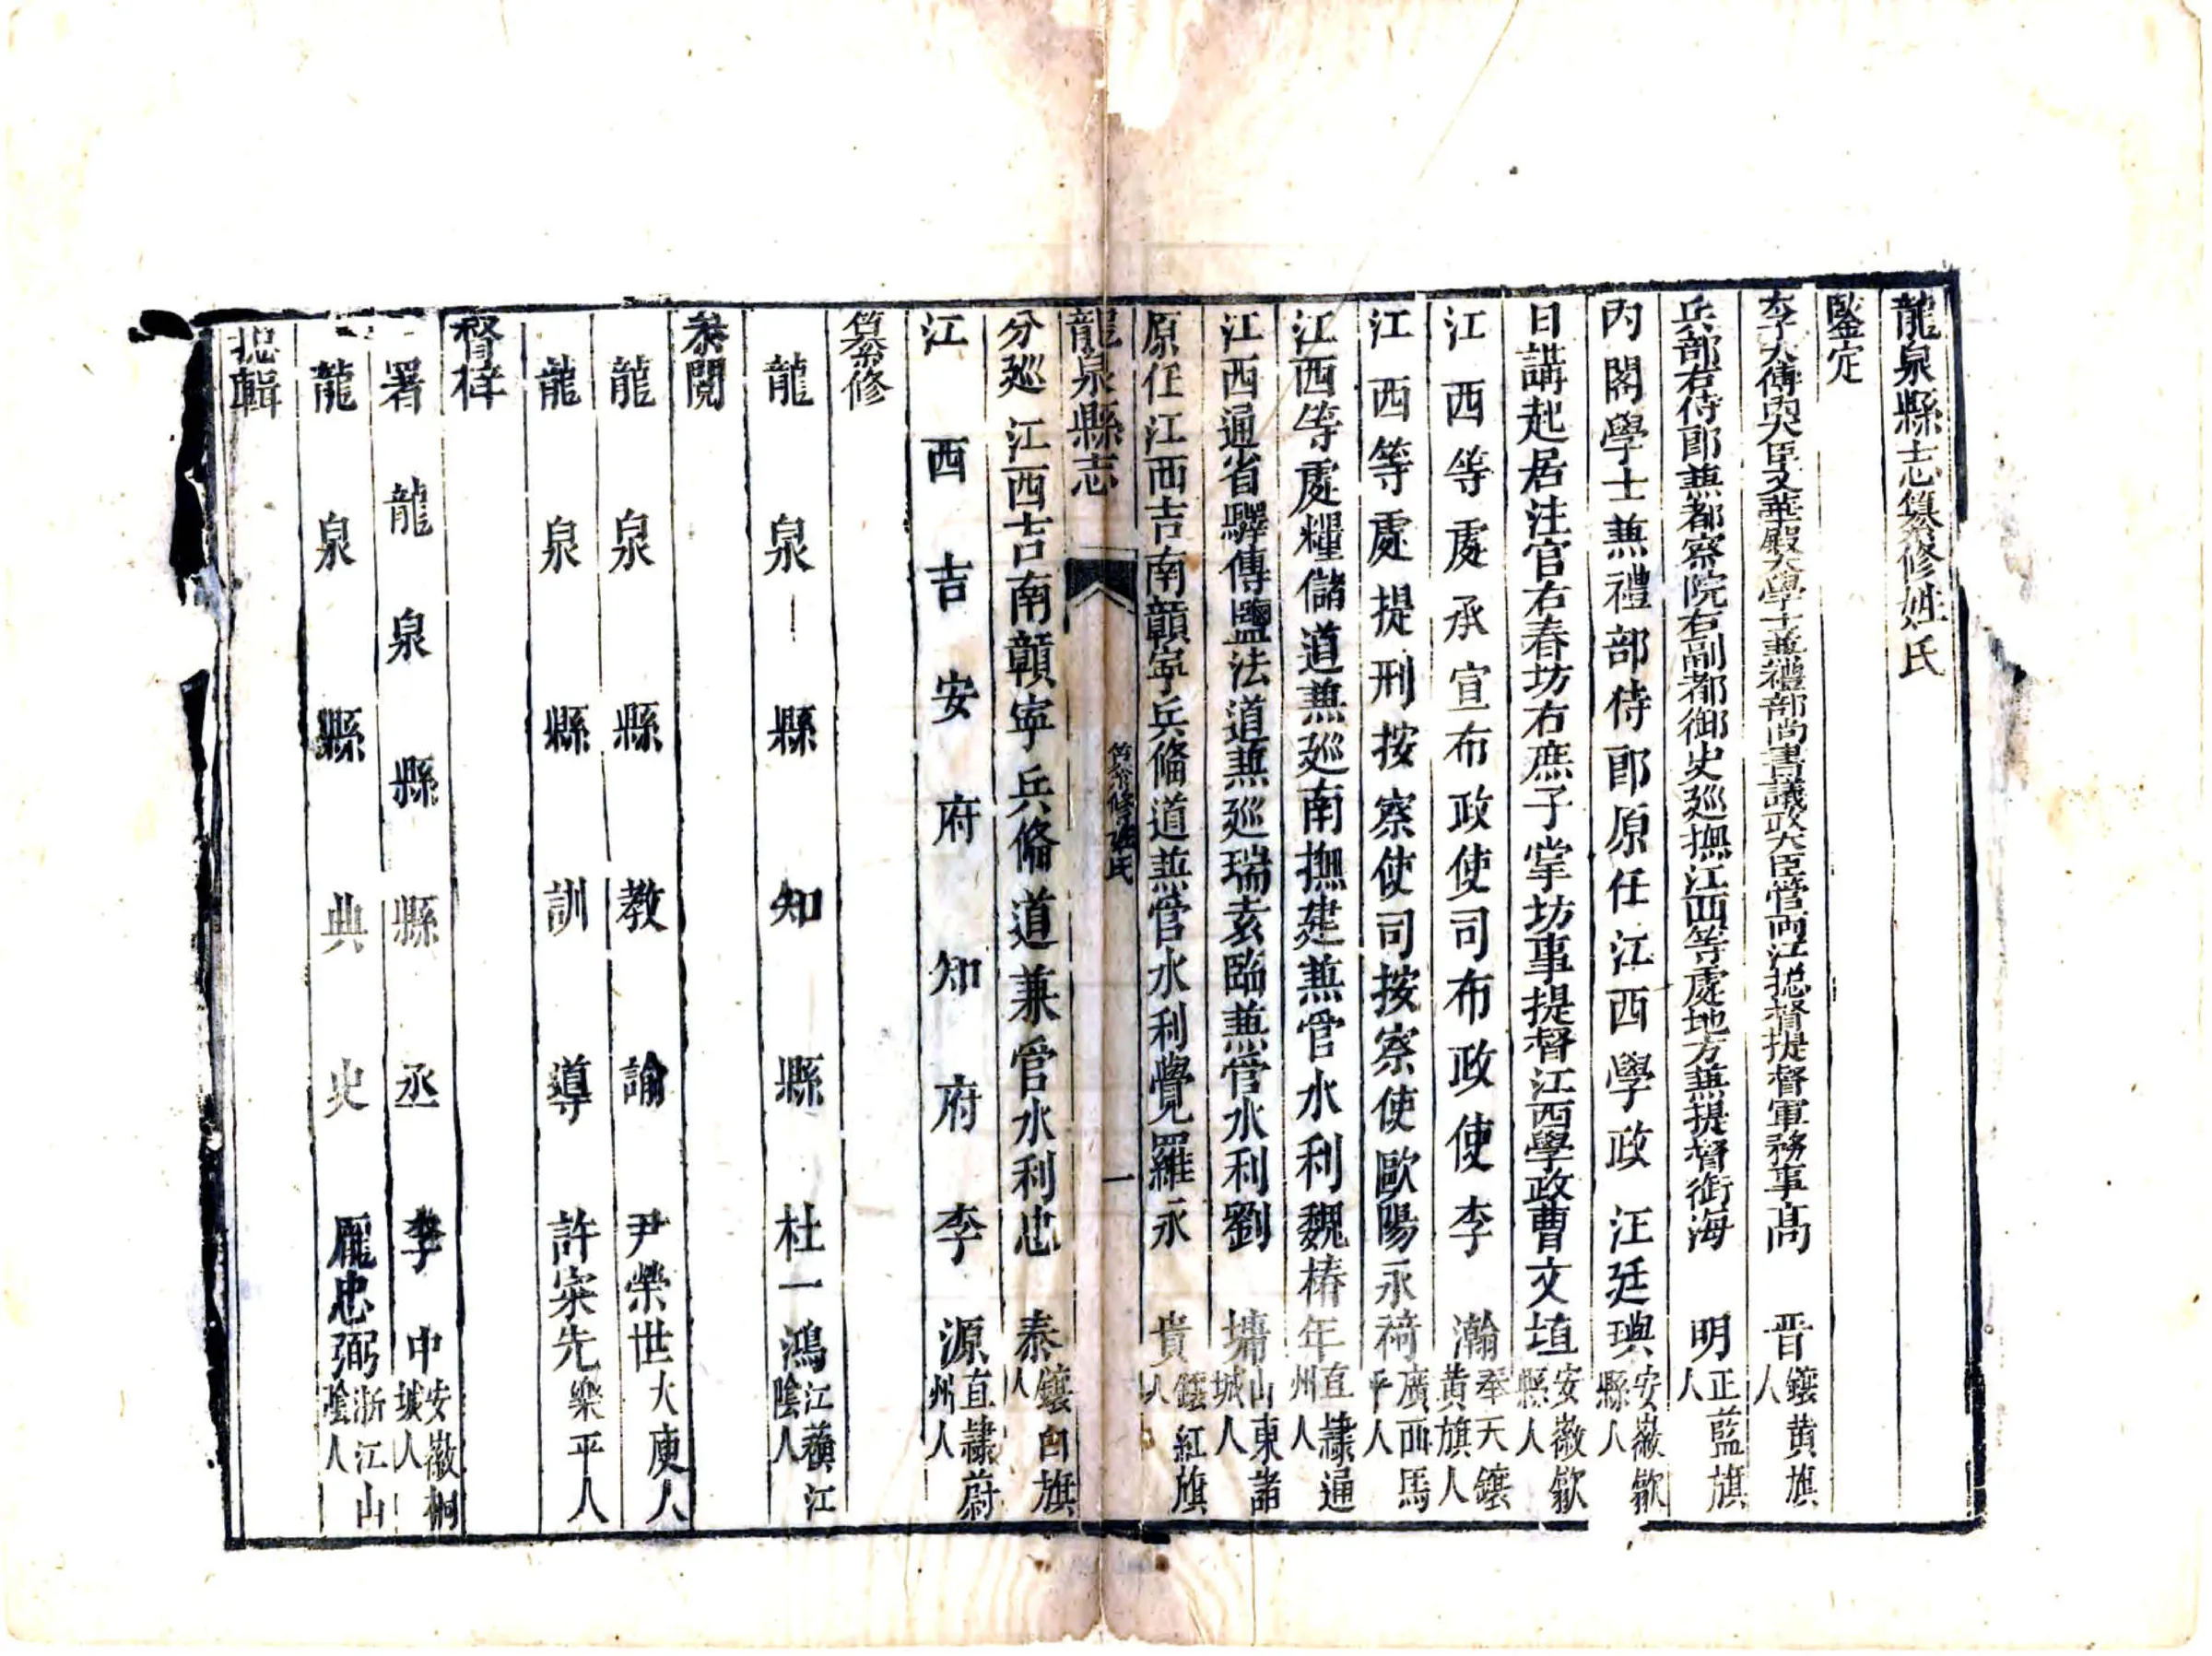 龍泉縣志纂修姓氏
鑒定
李太傅內大臣文華殿大學士兼禮部尚書議政大臣管兩江摠督提督軍務事高 晋鑲黄旗人
兵部右侍郎兼都察院右副都御史廵撫江西等處地方兼提督銜海 明正藍旗人
内閣學士兼禮部侍郎原任江西學政 汪廷璵安徽歙縣人
日講起居注官右春坊右庶子掌坊事提督江西學政曹文埴安徽歙縣人
江西等處承宣布政使司布政使李 瀚奉天鑲黄旗人
江西等處提刑按察使司按察使歐陽永裿廣西馬平人
江西等處糧儲道兼廵南撫建兼管水利魏椿年直隸通州人
江西通省驛傳鹽法道兼廵瑞袁臨兼管水利劉 墉山東諸城人
原任江西吉南贛寧兵備道兼管水利覺羅永 貴鑲紅旗人
龍泉縣志 纂修姓氏 一
分廵江西吉南贛寧兵備道兼管水利忠 泰鑲白旗人
江西吉安府知府李 源直隸蔚州人
纂修
龍泉縣知縣杜一鴻江蘇江陰人
叅閱
龍泉縣教諭尹榮世大庾人
龍泉縣訓導許寀先樂平人
督梓
署龍泉縣縣丞李 中安徽桐城人
龍泉縣典史龎忠弼浙江山陰人
摠輯